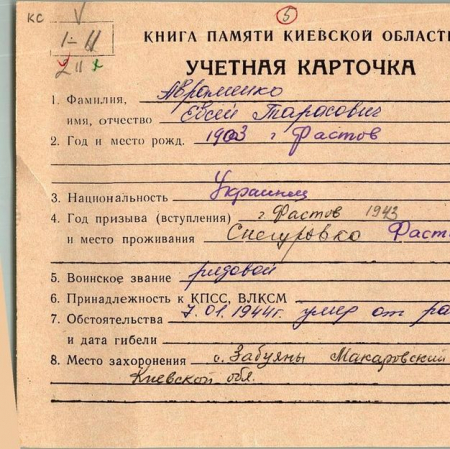 КС V
5
1-11
2 11
КНИГА ПАМЯТИ КИЕВСКОЙ ОБЛАСТ
УЧЕТНАЯ КАРТОЧКА
1. Фамилия, Авраменко
имя, отчество Евсей Тарасович
2. Год и место рожд. 1903 г Фастов
3. Национальность Украинец
4. Год призыва (вступления) г. Фастов 1943
и место проживания Снегуровко Фаст
5. Воинское звание рядовой
6. Принадлежность к КПСС, ВЛКСМ
7. Обстоятельства 7.01.1944г. умер от ра
и дата гибели
8. Место захоронения с. Забуяны Макаровский
Киевской обл.